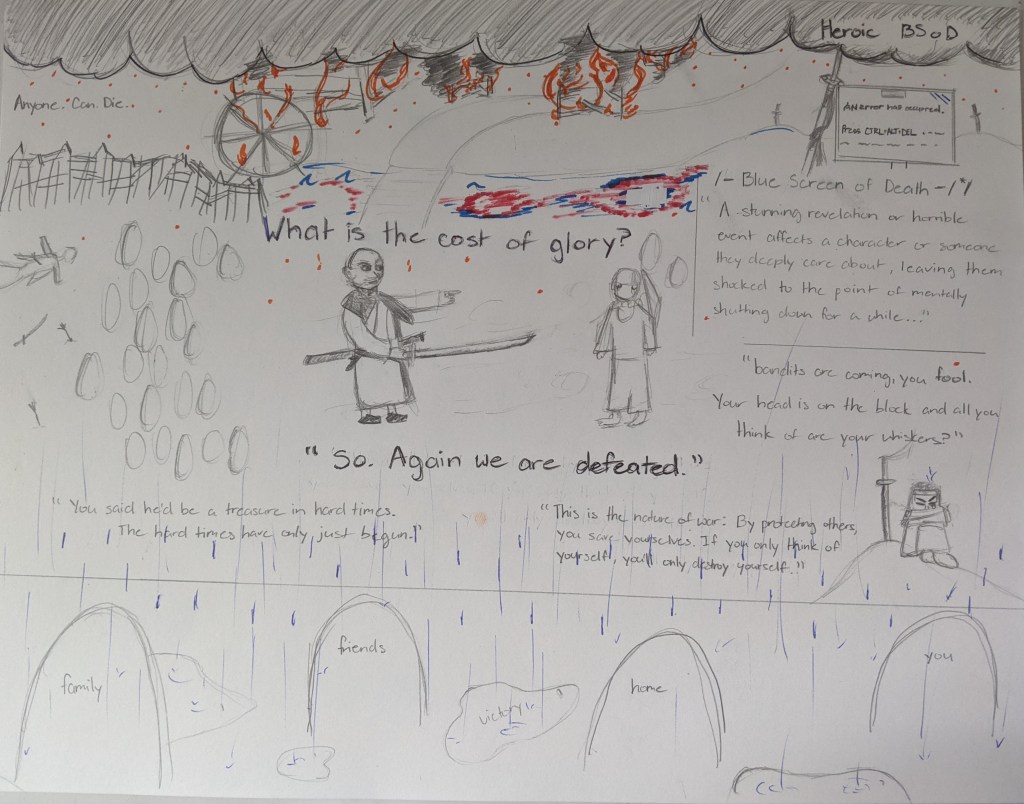 Heroic BSoD
Anyone. Can. Die..
An error has occurred.
Press CTRL+ALT+DEL
/- Blue Screen of Death -/
"A stunning revelation or horrible
event affects a character or someone
they deeply care about, leaving them
shocked to the point of mentally
shutting down for a while..."
What is the cost of glory?
"bandits are coming, you fool.
Your head is on the block and all you
think of are your whiskers?"
"So. Again we are defeated."
"You said he'd be a treasure in hard times.
The hard times have only just begun."
"This is the nature of war: By protecting others,
you save yourselves. If you only think of
yourself, you'll only destroy yourself."
family
friends
home
you
victory